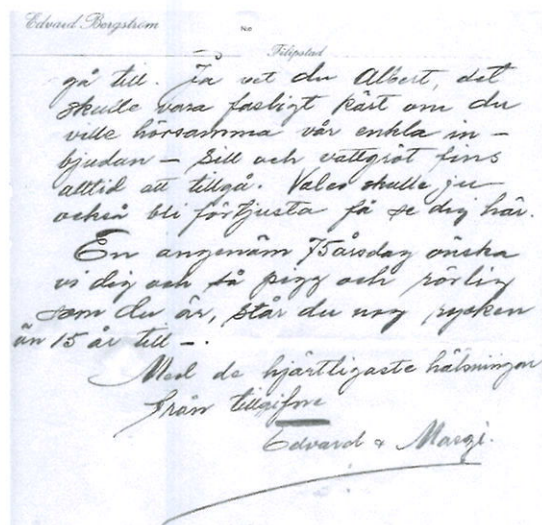 Edvard Bergström
No
Filipstad
gå till. Ja vet du Albert, det
skulle vara fasligt kärt om du
ville hörsamma vår enkla in-
bjudan - Sill och vattgröt fins
alltid att tillgå. Vales skulle ju
också bli förtjusta få se dig här.
En angenäm 75årsdag önska
vi dig och så pigg och rörlig
som du är, står du nog rycken
än 15 år till -.
Med de hjärtligaste hälsningar
från tillgifne
Edvard & Margi.